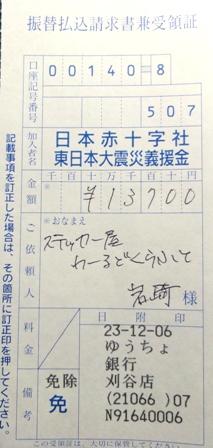 振替払込請求書兼受領証
口座記号番号
00140=8
507
加入者名
日本赤十字社
東日本大震災義援金
金額
千百十万千百十円
¥13700
ご依頼人
※おなまえ
ステッカー屋
わーるどくらふと
岩崎 様
料金
備考
免除
免
日附印
23-12-06
ゆうちょ
銀行
刈谷店
(21066)07
N91640006
記載事項を訂正した場合は、その箇所に訂正印を押してください。
この受領証は、大切に保管してください。